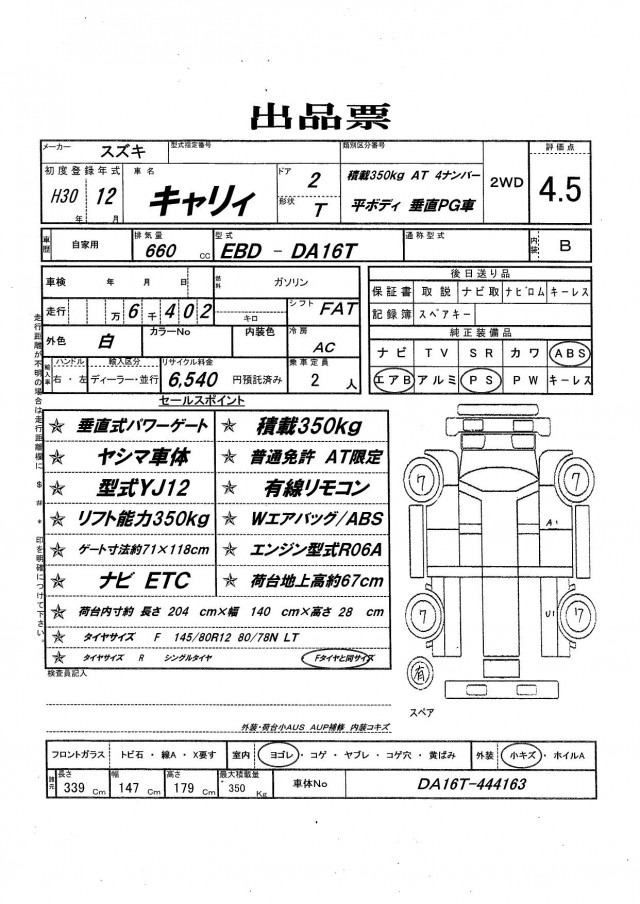 出品票
メーカー スズキ 型式指定番号 類別区分番号 評価点
初度登録年式 車名 ドア 2 積載350kg AT 4ナンバー 2WD 4.5
H30 年 12 月 キャリィ 形状 T 平ボディ 垂直PG車
車歴 自家用 排気量 660 cc 型式 EBD - DA16T 通称型式 内装 B
車検 年 月 日 燃料 ガソリン
走行 万 6 千 4 0 2 キロ シフト FAT
外色 白 カラーNo 内装色 冷房 AC
輸入車 ハンドル 右・左 輸入区分 ディーラー・並行 リサイクル料金 6,540 円預託済み 乗車定員 2 人
後日送り品
保証書 取説 ナビ取 ナビロム キーレス
記録簿 スペアキー
純正装備品
ナビ TV SR カワ ABS
エアB アルミ PS PW キーレス
走行距離が不明の場合は走行距離欄に $ # * 印を明確につけて下さい。
セールスポイント
☆ 垂直式パワーゲート ☆ 積載350kg
☆ ヤシマ車体 ☆ 普通免許 AT限定
☆ 型式YJ12 ☆ 有線リモコン
☆ リフト能力350kg ☆ Wエアバッグ/ABS
☆ ゲート寸法約71×118cm ☆ エンジン型式R06A
☆ ナビ ETC ☆ 荷台地上高約67cm
☆ 荷台内寸約 長さ 204 cm×幅 140 cm×高さ 28 cm
☆ タイヤサイズ F 145/80R12 80/78N LT
☆ タイヤサイズ R シングルタイヤ Fタイヤと同サイズ
7 7
A1
7 U1 7
有
スペア
検査員記入
外装・荷台小AUS AUP補修 内装コキズ
フロントガラス トビ石・線A・X要す 室内 ヨゴレ・コゲ・ヤブレ・コゲ穴・黄ばみ 外装 小キズ・ホイルA
諸元 長さ 339 Cm 幅 147 Cm 高さ 179 Cm 最大積載量 350 Kg 車体No DA16T-444163